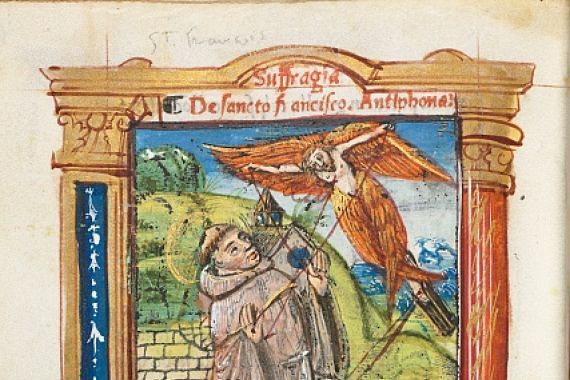 ST. Francois
Suffragia
¶ De sancto francisco. Antiphona: